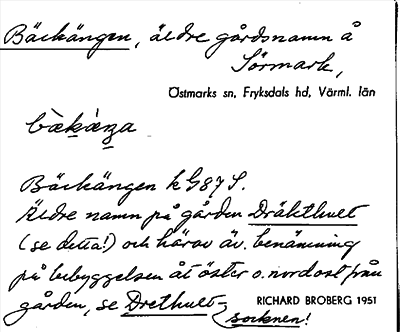 Bäckängen, äldre gårdsnamn å
Sörmark,
Östmarks sn, Fryksdals hd, Värml. län
bækæŋa
Bäckängen k G87 S.
Äldre namn på gården Dräkthult
(se detta!) och härav äv. benämning
på bebyggelsen åt öster o. nordost från
gården, se Drethult-
socknen!
RICHARD BROBERG 1951